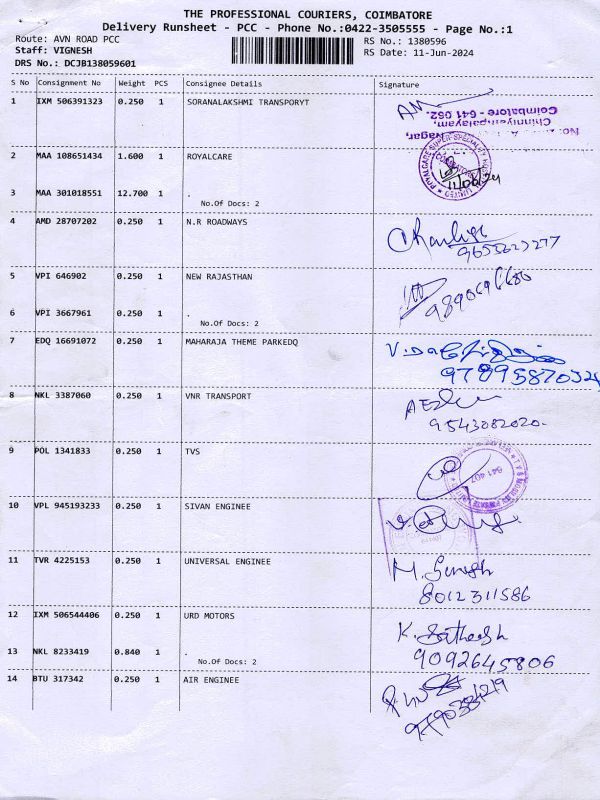 THE PROFESSIONAL COURIERS, COIMBATORE
Delivery Runsheet - PCC - Phone No.:0422-3505555 - Page No.:1
Route: AVN ROAD PCC RS No.: 1380596
Staff: VIGNESH RS Date: 11-Jun-2024
DRS No.: DCJB138059601
S No Consignment No Weight PCS Consignee Details Signature
1 IXM 506391323 0.250 1 SORANALAKSHMI TRANSPORYT
Chinniyampalayam,
Coimbatore - 641 062.
2 MAA 108651434 1.600 1 ROYALCARE
11/06/24
3 MAA 301018551 12.700 1 .
No.Of Docs: 2
4 AMD 28707202 0.250 1 N.R ROADWAYS
5 VPI 646902 0.250 1 NEW RAJASTHAN
6 VPI 3667961 0.250 1 .
No.Of Docs: 2
7 EDQ 16691072 0.250 1 MAHARAJA THEME PARKEDQ
8 NKL 3387060 0.250 1 VNR TRANSPORT
9543082020.
9 POL 1341833 0.250 1 TVS
641 407
10 VPL 945193233 0.250 1 SIVAN ENGINEE
11 TVR 4225153 0.250 1 UNIVERSAL ENGINEE
M. Suresh
8012311586
12 IXM 506544406 0.250 1 URD MOTORS
K. Satheesh
13 NKL 8233419 0.840 1 .
9092645806
No.Of Docs: 2
14 BTU 317342 0.250 1 AIR ENGINEE